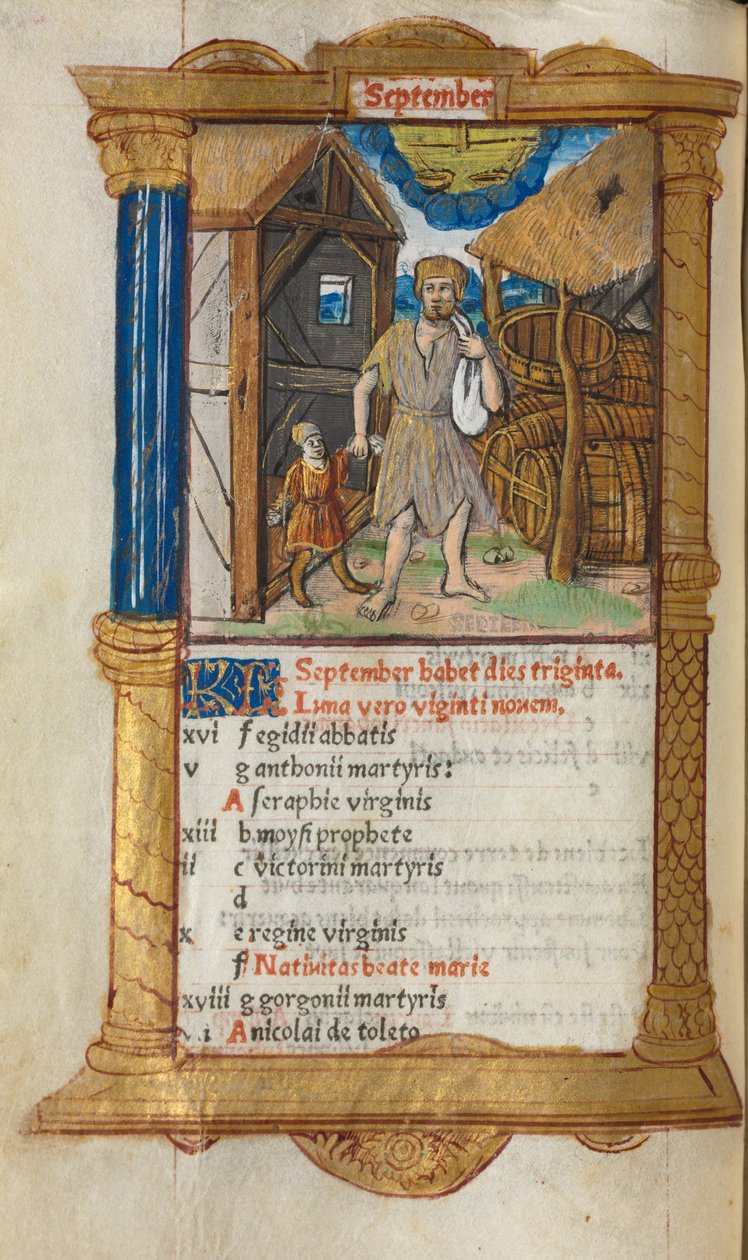 September
KL September habet dies triginta.
Luna vero viginti novem.
xvi f egidii abbatis
v g anthonii martyris:
A seraphie virginis
xiii b moysi prophete
ii c victorini martyris
d
x e regine virginis
f Nativitas beate marie
xviii g gorgonii martyris
A nicolai de toleto